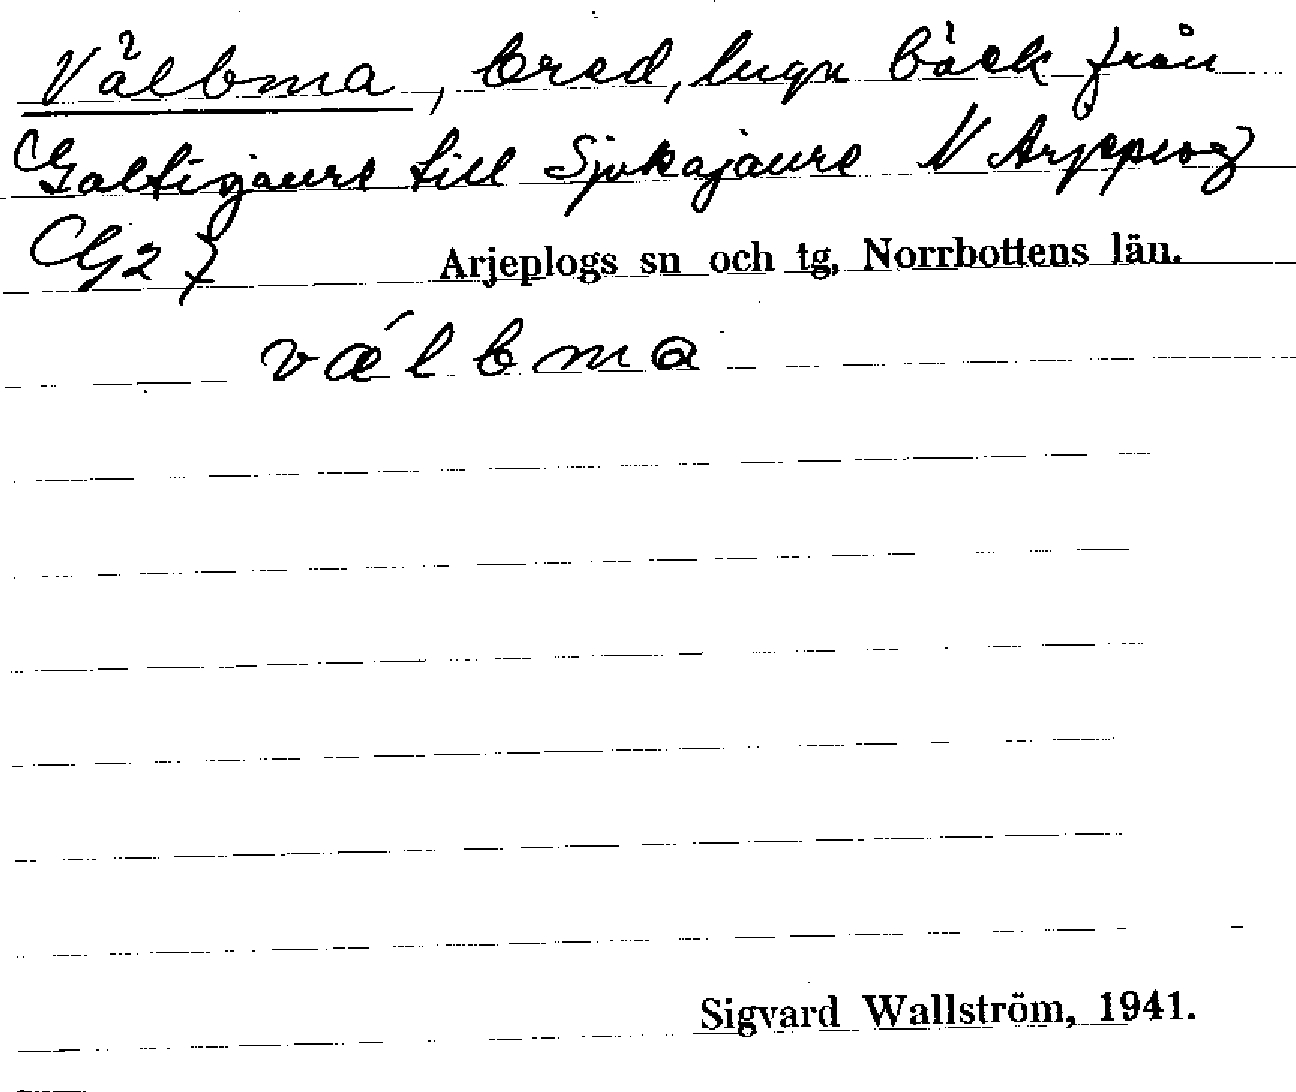 Välbma, bred, lugn bäck från
Galtisjaure till Sjokajaure N Arjeplog
G27 Arjeplogs sn och tg, Norrbottens län.
vǽlbma
Sigvard Wallström, 1941.